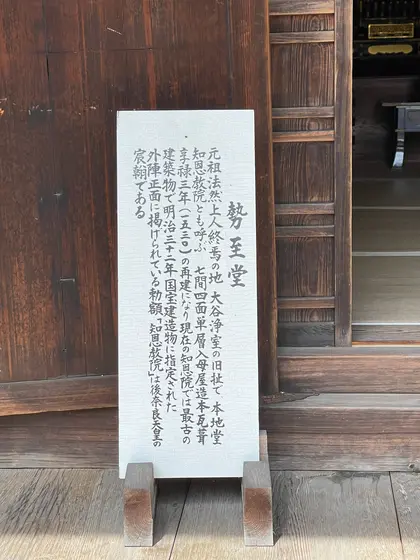 勢至堂
元祖法然上人終焉の地 大谷浄室の旧扯で 本地堂
知恩教院とも呼ぶ 七間四面単層入母屋造本瓦葺
享禄三年(一五三〇)の再建になり現在の知恩院では最古の
建築物で明治三十二年国宝建造物に指定された
外陣正面に掲げられている勅額「知恩教院」は後奈良天皇の
宸翰である